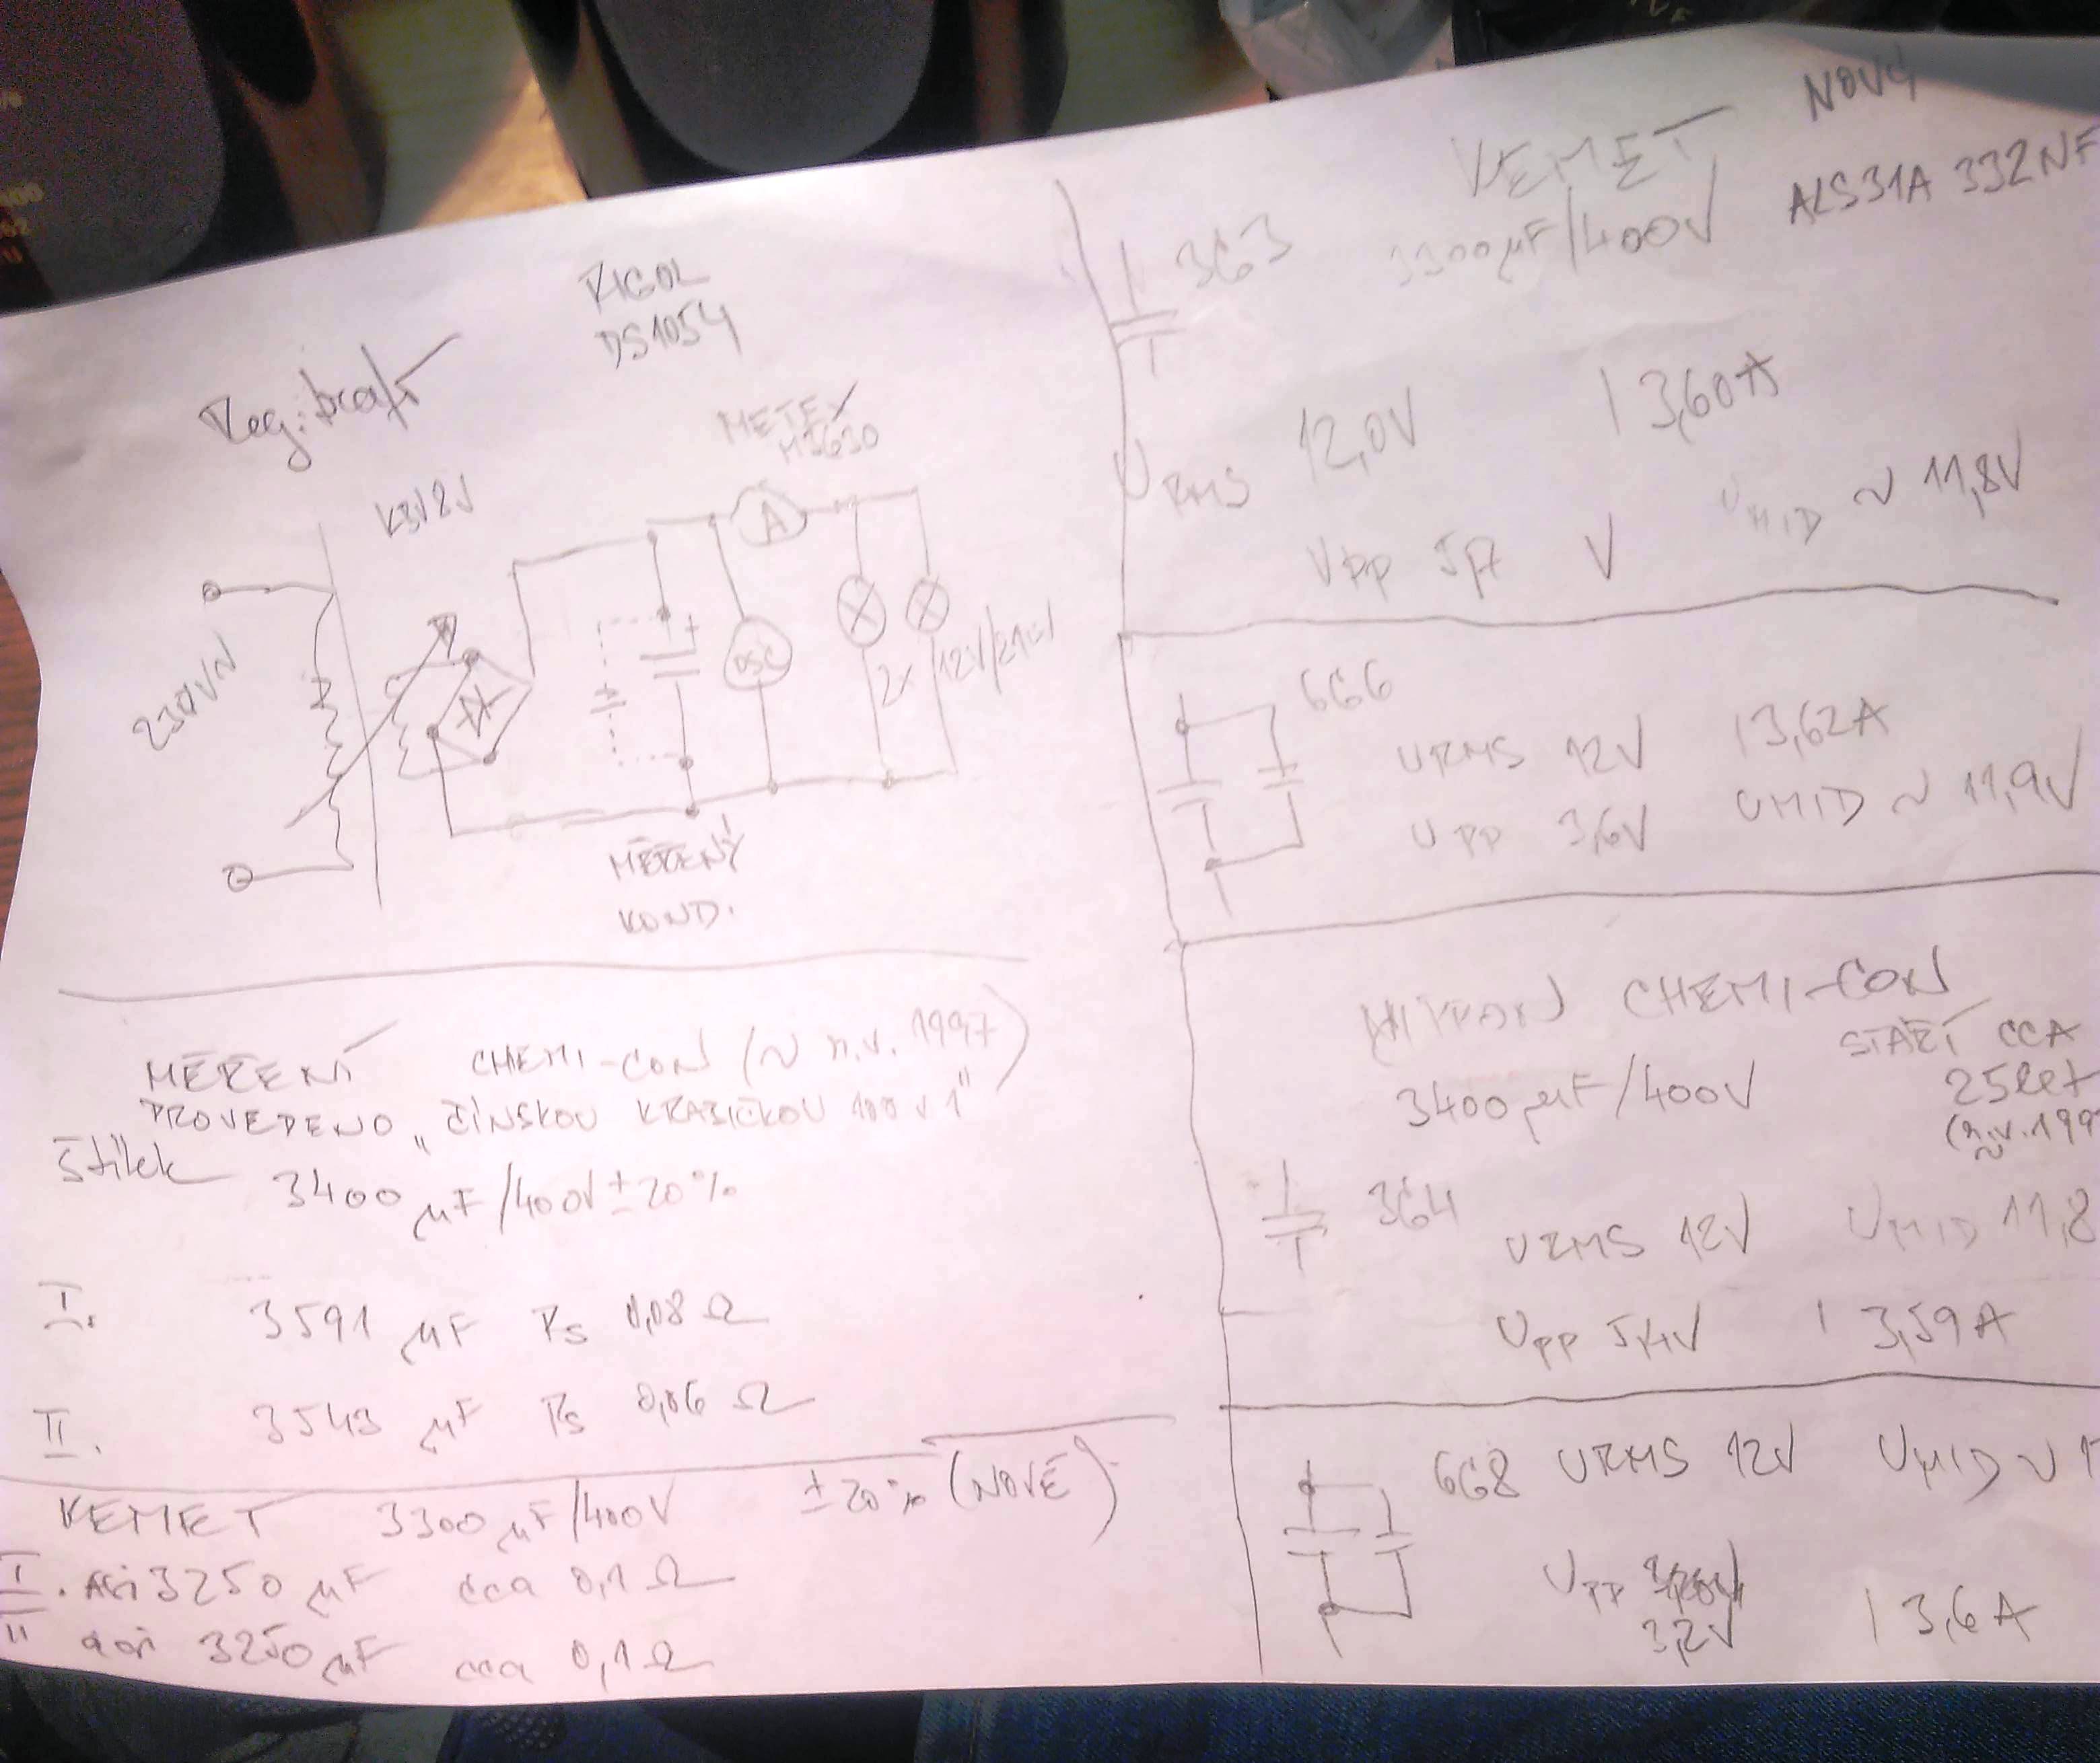 RIGOL
DS1054
METEX
M3630
230V~
A
OSC
+
2x 12V/21W
MĚŘENÝ
KOND.
MĚŘENÍ CHEMI-CON (~ r.v. 1997)
PROVEDENO „ČÍNSKOU KRABIČKOU 100 v 1"
Štítek 3400 µF/400V ± 20%
I. 3591 µF Rs 0,08 Ω
II. 3543 µF Rs 0,06 Ω
KEMET 3300 µF/400V ± 20% (NOVÉ)
I. asi 3250 µF cca 0,1 Ω
II asi 3250 µF cca 0,1 Ω
KEMET NOVÝ
363 3300µF/400V ALS31A 332NF
URMS 12,0V I 3,60A
UPP V UMID ~ 11,8V
666
URMS 12V I 3,62A
UPP 3,6V UMID ~ 11,9V
NIPPON CHEMI-CON
3400 µF/400V STÁŘÍ CCA
25let
(r.v. 199
364
URMS 12V UMID 11,8
UPP 5,4V I 3,59A
668 URMS 12V UMID ~ 1
UPP
3,2V I 3,6A